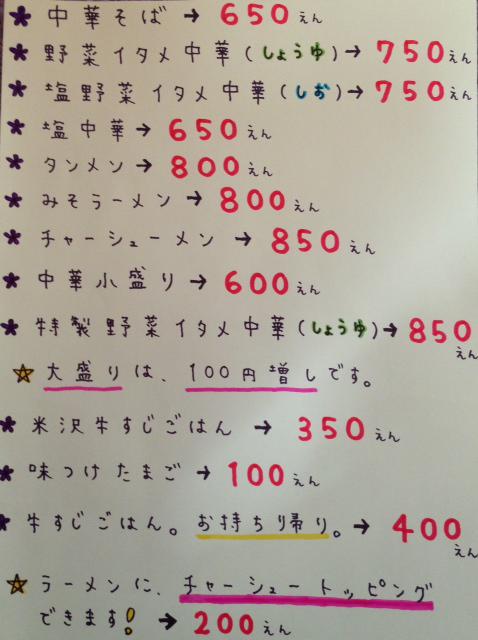 * 中華そば → 650えん
* 野菜イタメ中華(しょうゆ)→ 750えん
* 塩野菜イタメ中華(しお)→ 750えん
* 塩中華 → 650えん
* タンメン → 800えん
* みそラーメン → 800えん
* チャーシューメン → 850えん
* 中華小盛り → 600えん
* 特製野菜イタメ中華(しょうゆ)→ 850えん
☆ 大盛りは、100円増しです。
* 米沢牛すじごはん → 350えん
* 味つけたまご → 100えん
* 牛すじごはん。お持ち帰り。→ 400えん
☆ ラーメンに、チャーシュートッピング
できます! → 200えん